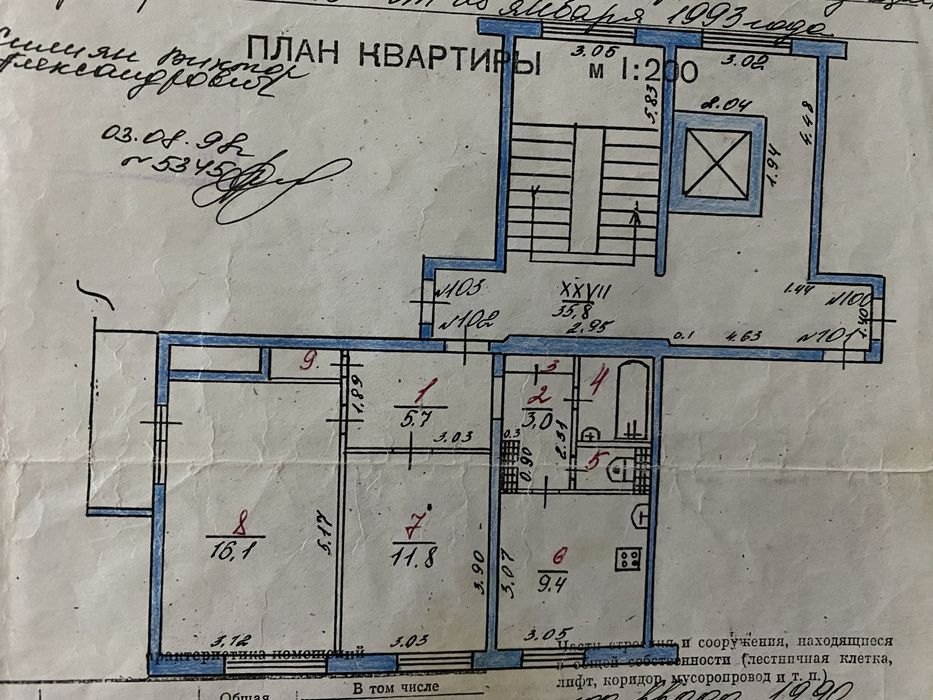 от января 1993 года
ПЛАН КВАРТИРЫ м 1:200
Виктор
Александрович
03.08.98г
№5345
3.05
3.02
5.83
2.04
4.48
1.94
№103
XXVII
35,8
1.44
№100
№102
2.95
0.1
4.63
№101
1.40
9.
3
1.89
1
5.7
2
3.0
4
3.03
0.3
0.90
2.31
5
8
16,1
5.17
7
11.8
3.90
3.07
6
9.4
3.12
3.03
3.05
характеристика помещений
Части строения и сооружения, находящиеся
в общей собственности (лестничная клетка,
лифт, коридор, мусоропровод и т. п.)
Общая
В том числе
1990